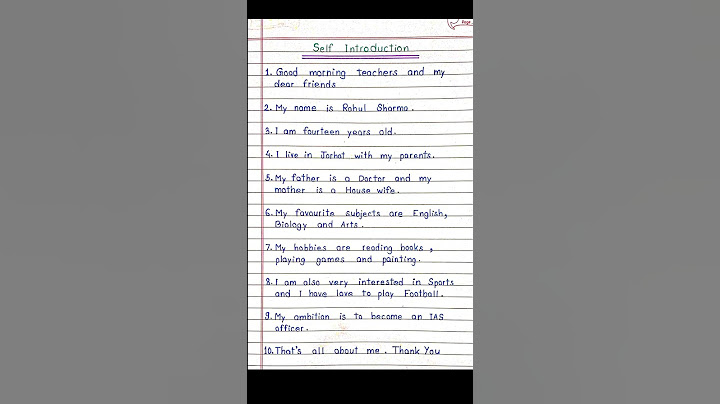 Page
Self Introduction
1. Good morning teachers and my
dear friends
2. My name is Rahul Sharma.
3. I am fourteen years old.
4. I live in Jorhat with my parents.
5. My father is a Doctor and my
mother is a House wife.
6. My favourite subjects are English,
Biology and Arts.
7. My hobbies are reading books,
playing games and painting.
8. I am also very interested in Sports
and I have love to play Football.
9. My ambition is to become an IAS
officer.
10. That's all about me. Thank You